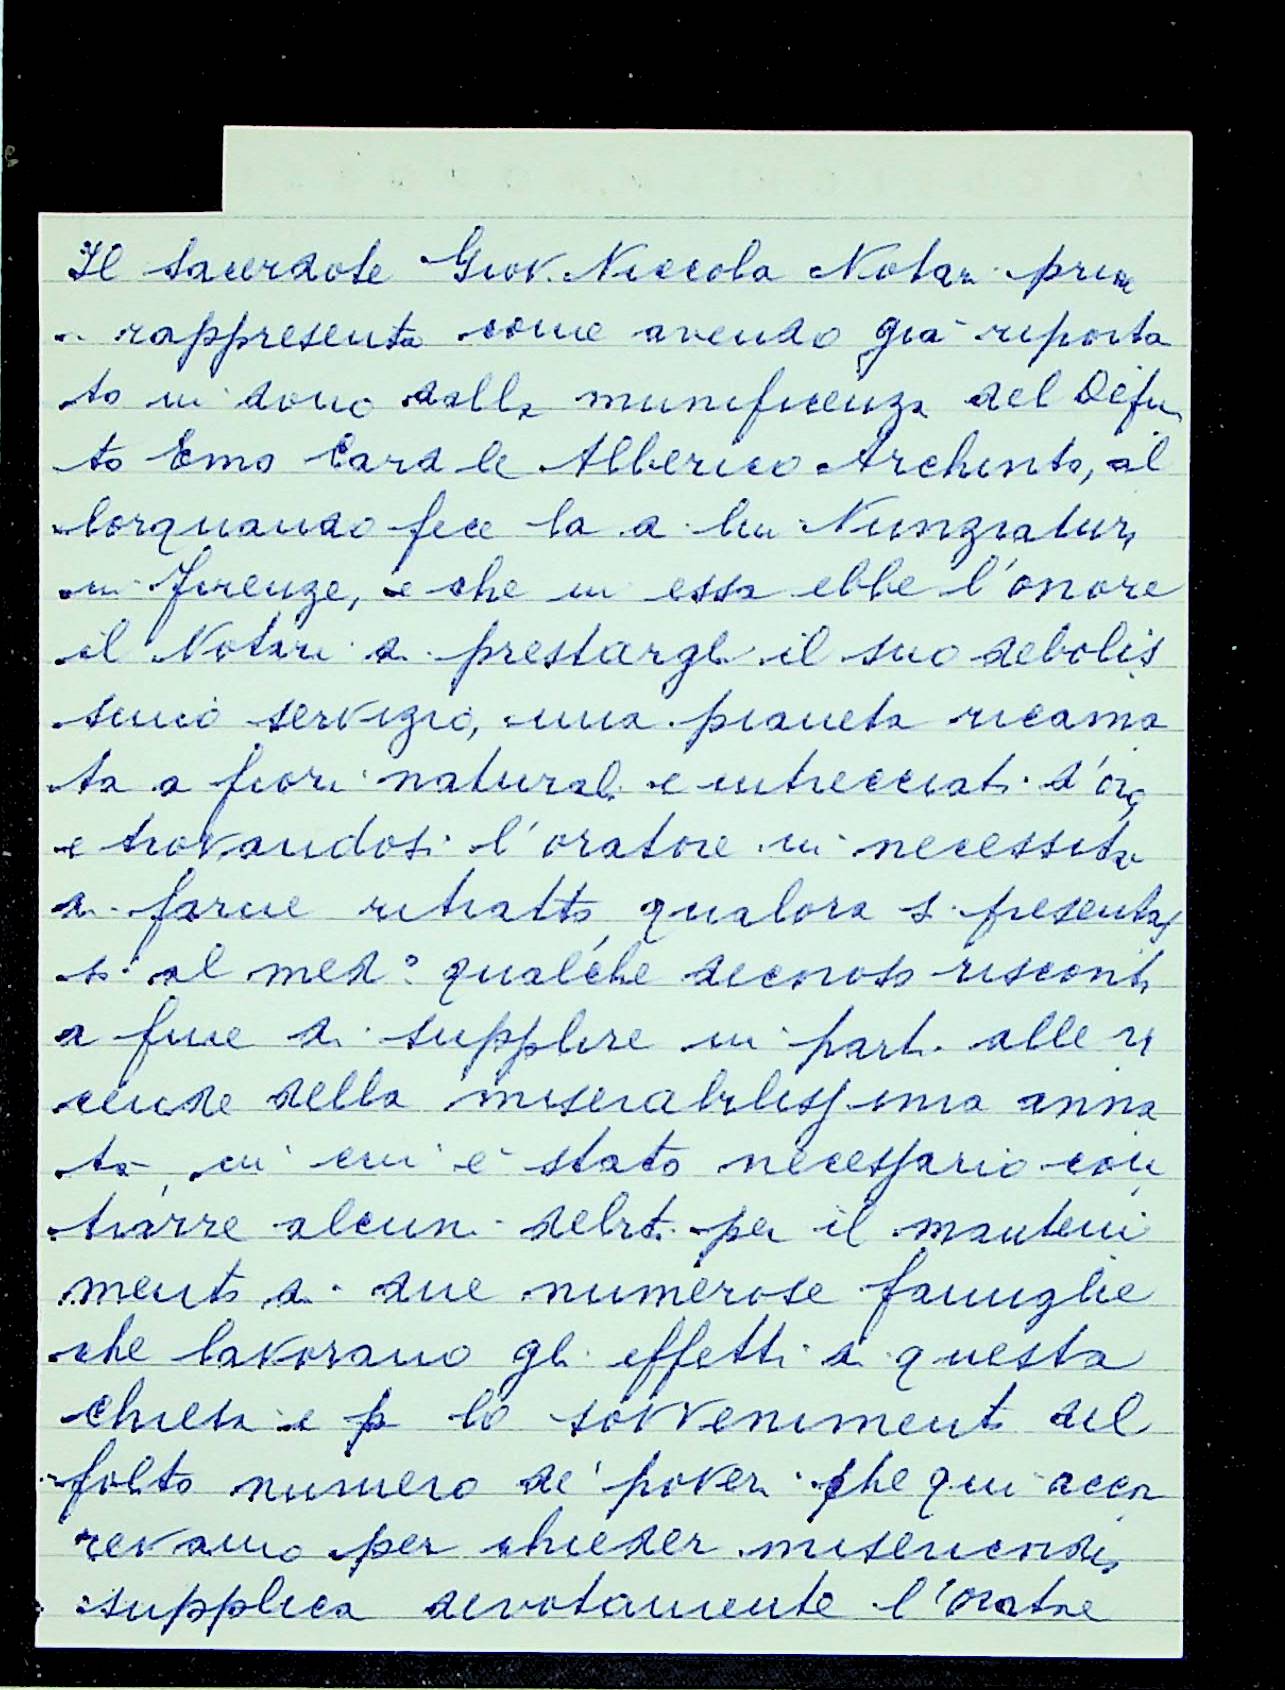 Il sacerdote Giov. Niccola Notari prim
rappresenta come avendo già riporta
to in dono dalla munificenza del Defun
to Emo Card le Alberico Archinto, al
lorquando fece la di lui Nunziatura
in Firenze, e che in essa ebbe l'onore
il Notari di prestargli il suo debolis
simo servizio, una pianeta ricama
ta a fiori naturali e intrecciati d'oro,
e trovandosi l'oratore in necessità
di farne ritratto qualora si presentas
si al med.º qualche decoroso riscontro
a fine di supplire in parte alle vi
cende della miserabilissima anna
ta, in cui è stato necessario con
trarre alcuni debiti per il manteni
mento di due numerose famiglie
che lavorano gli effetti di questa
chiesa e p lo sovvenimento del
folto numero de' poveri che qui accor
revano per chieder misericordia,
supplica devotamente l'Oratore